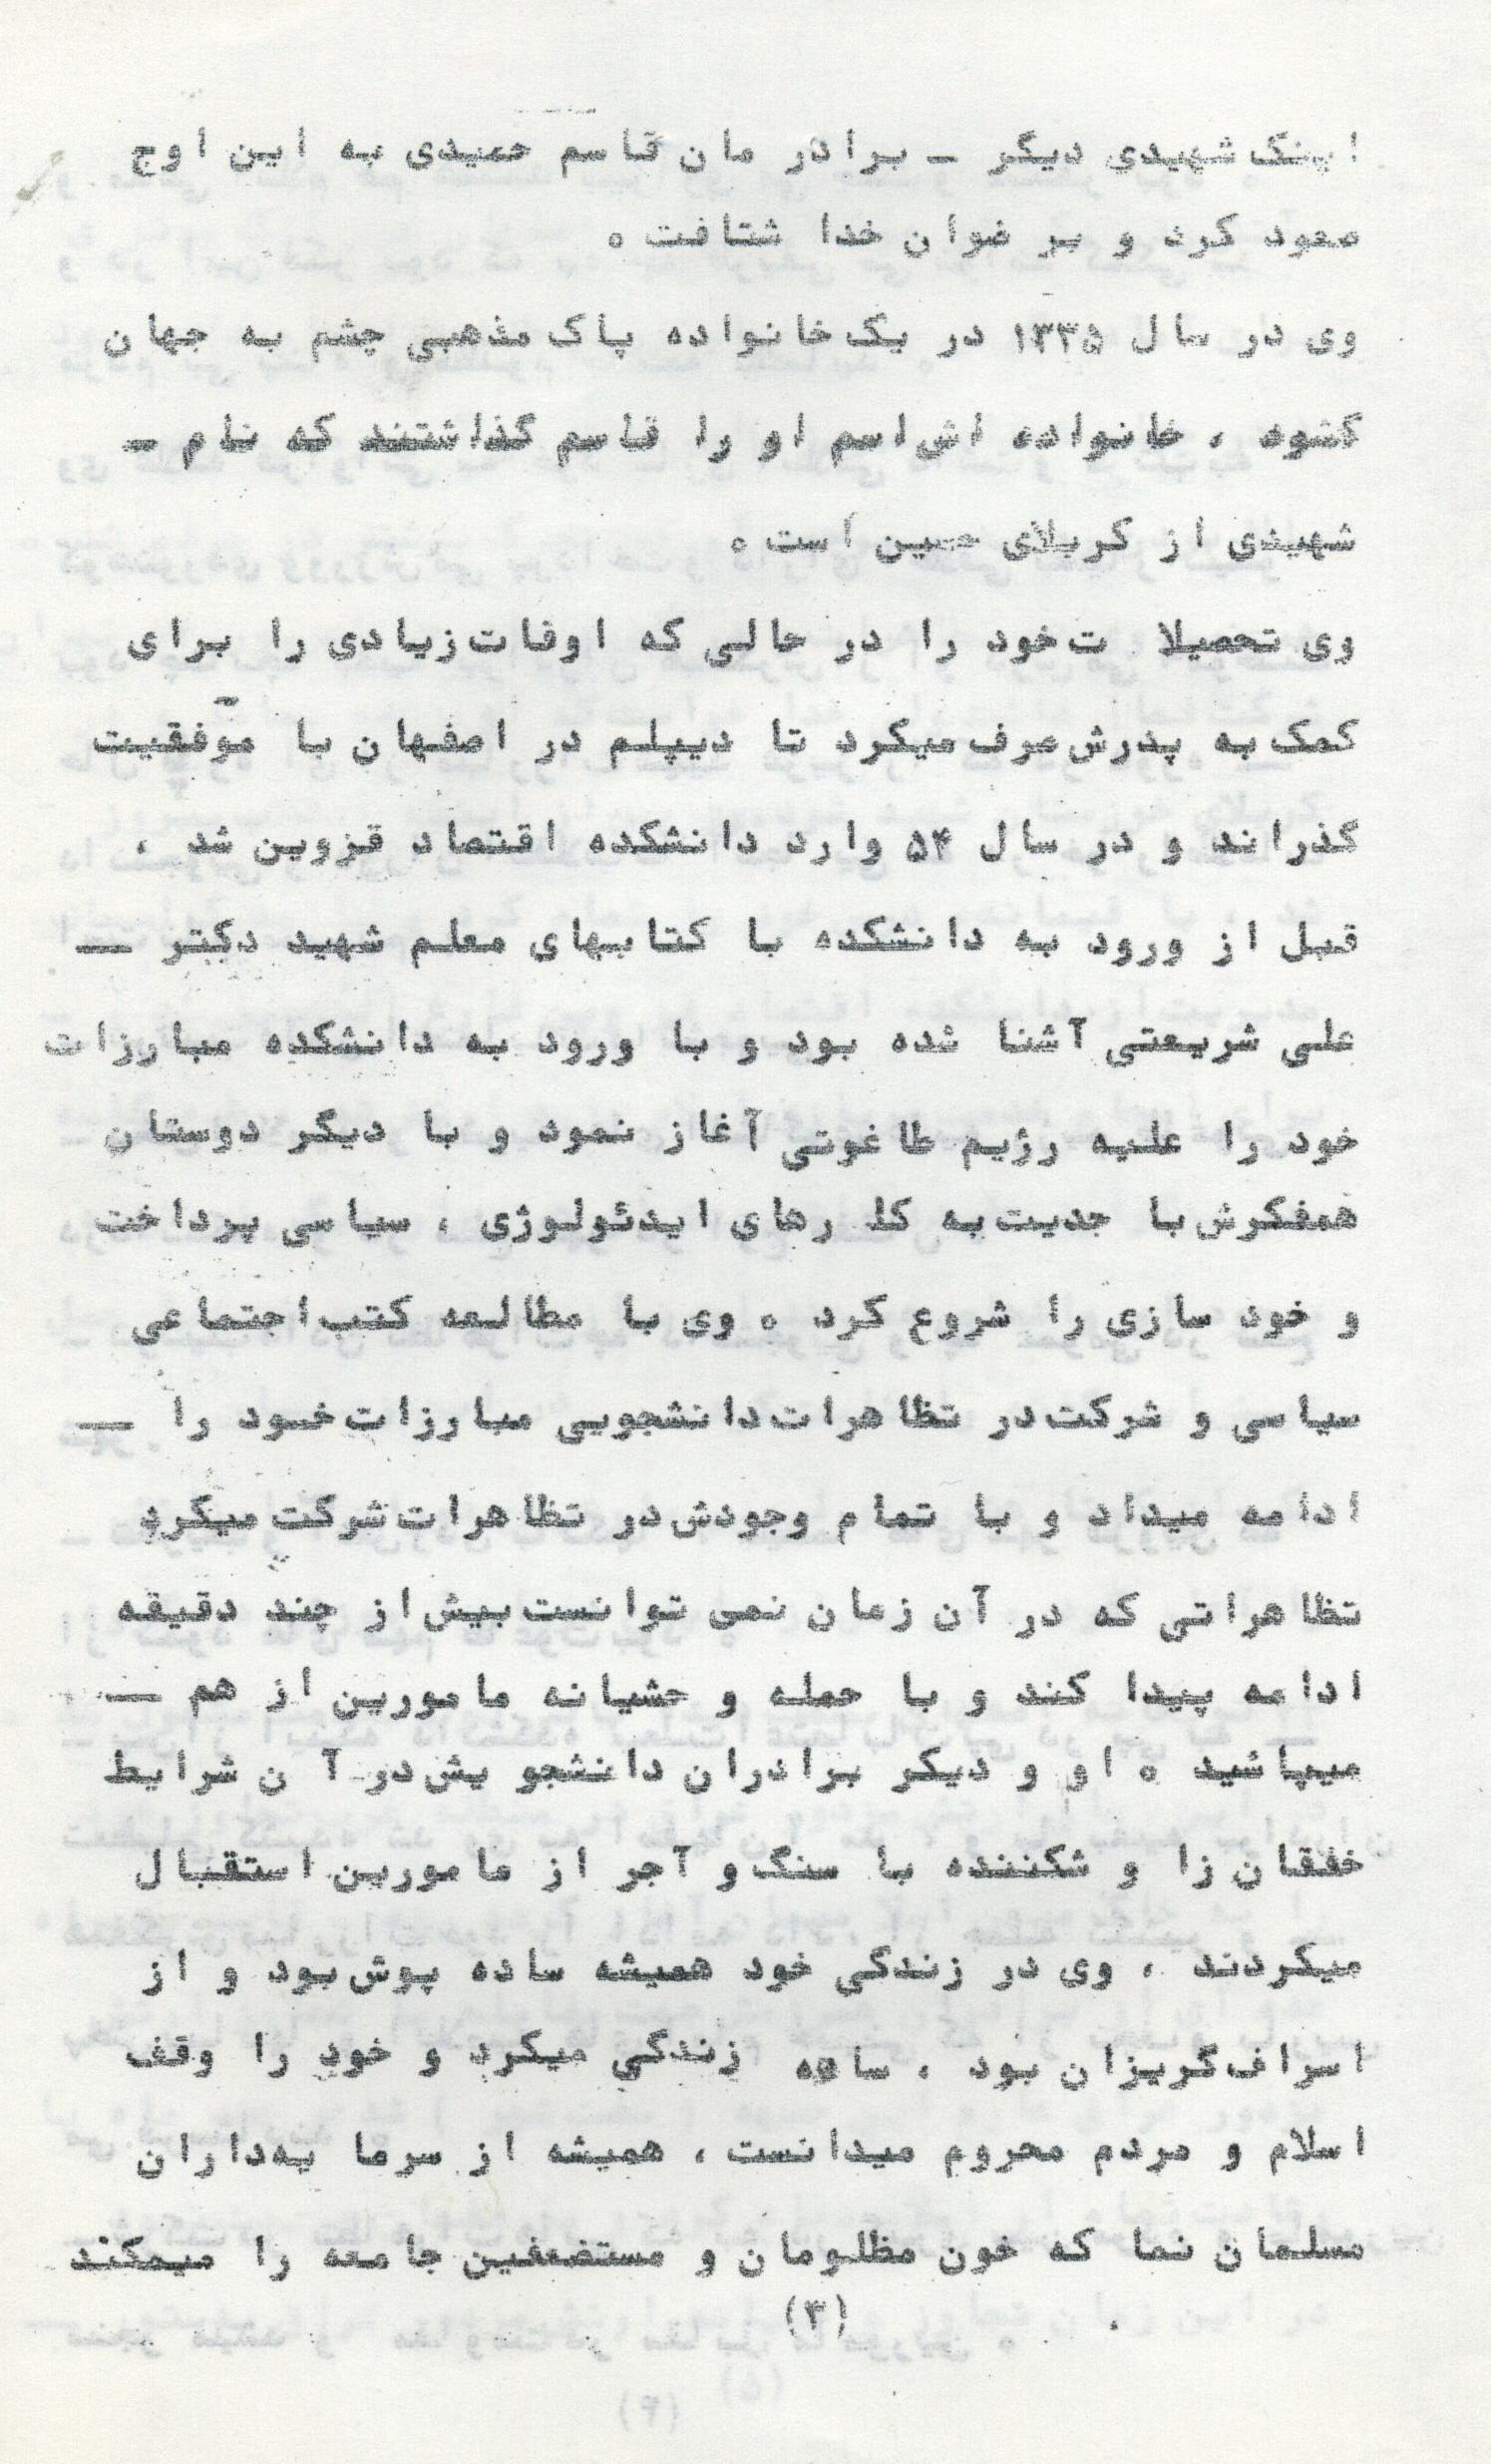 اینک شهیدی دیگر ـ برادر مان قاسم حمیدی به این اوج
صعود کرد و بر خوان خدا شتافت ۰
وی در سال ۱۳۳۵ در یک خانواده پاک مذهبی چشم به جهان
کشود ، خانواده اش اسم او را قاسم گذاشتند که نام ـ
شهیدی از کربلای حسین است ۰
وی تحصیلا ت خود را در حالی که اوقات زیادی را برای
کمک به پدرش صرف میکرد تا دیپلم در اصفهان با موّفقیت
گذراند و در سال ۵۴ وارد دانشکده اقتصاد قزوین شد ،
قبل از ورود به دانشکده با کتابهای معلم شهید دکتر ــ
علی شریعتی آشنا شده بود و با ورود به دانشکده مبارزات
خود را علیه رژیم طاغوتی آغاز نمود و با دیگر دوستان
همفکرش با جدیت به کا رهای ایدئولوژی ، سیاسی پرداخت
و خود سازی را شروع کرد ۰ وی با مطالعه کتب اجتماعی
سیاسی و شرکت در تظاهرات دانشجویی مبارزات خود را ــ
ادامه میداد و با تمام وجودش در تظاهرات شرکت میکرد
تظاهراتی که در آن زمان نمی توانست بیش از چند دقیقه
ادامه پیدا کند و با حمله و حشیانه مامورین از هم ــ
میپاشید ۰ او و دیکر برادران دانشجو یش در آ ن شرایط
خفقان زا و شکننده با سنگ و آجر از مامورین استقبال
میکردند ، وی در زندگی خود همیشه ساده پوش بود و از
اسراف گریزان بود ، ساده زندگی میکرد و خود را وقف
اسلام و مردم محروم میدانست ، همیشه از سرما یه‌داران
مسلمان نما که خون مظلومان و مستضعفین جامعه را میمکند
(۳)